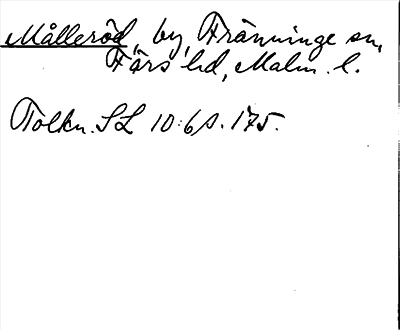 Målleröd, by, Fränninge sn,
Färs hd, Malm. l.
Tolkn. SL 10:6 s. 175.